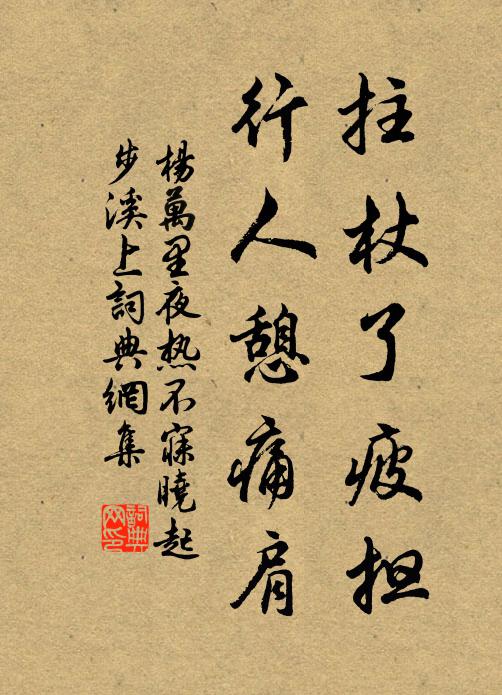 拄杖了疲担
行人憩痛肩
楊萬里夜热不寐曉起
步溪上詞典網集
詞典
网印